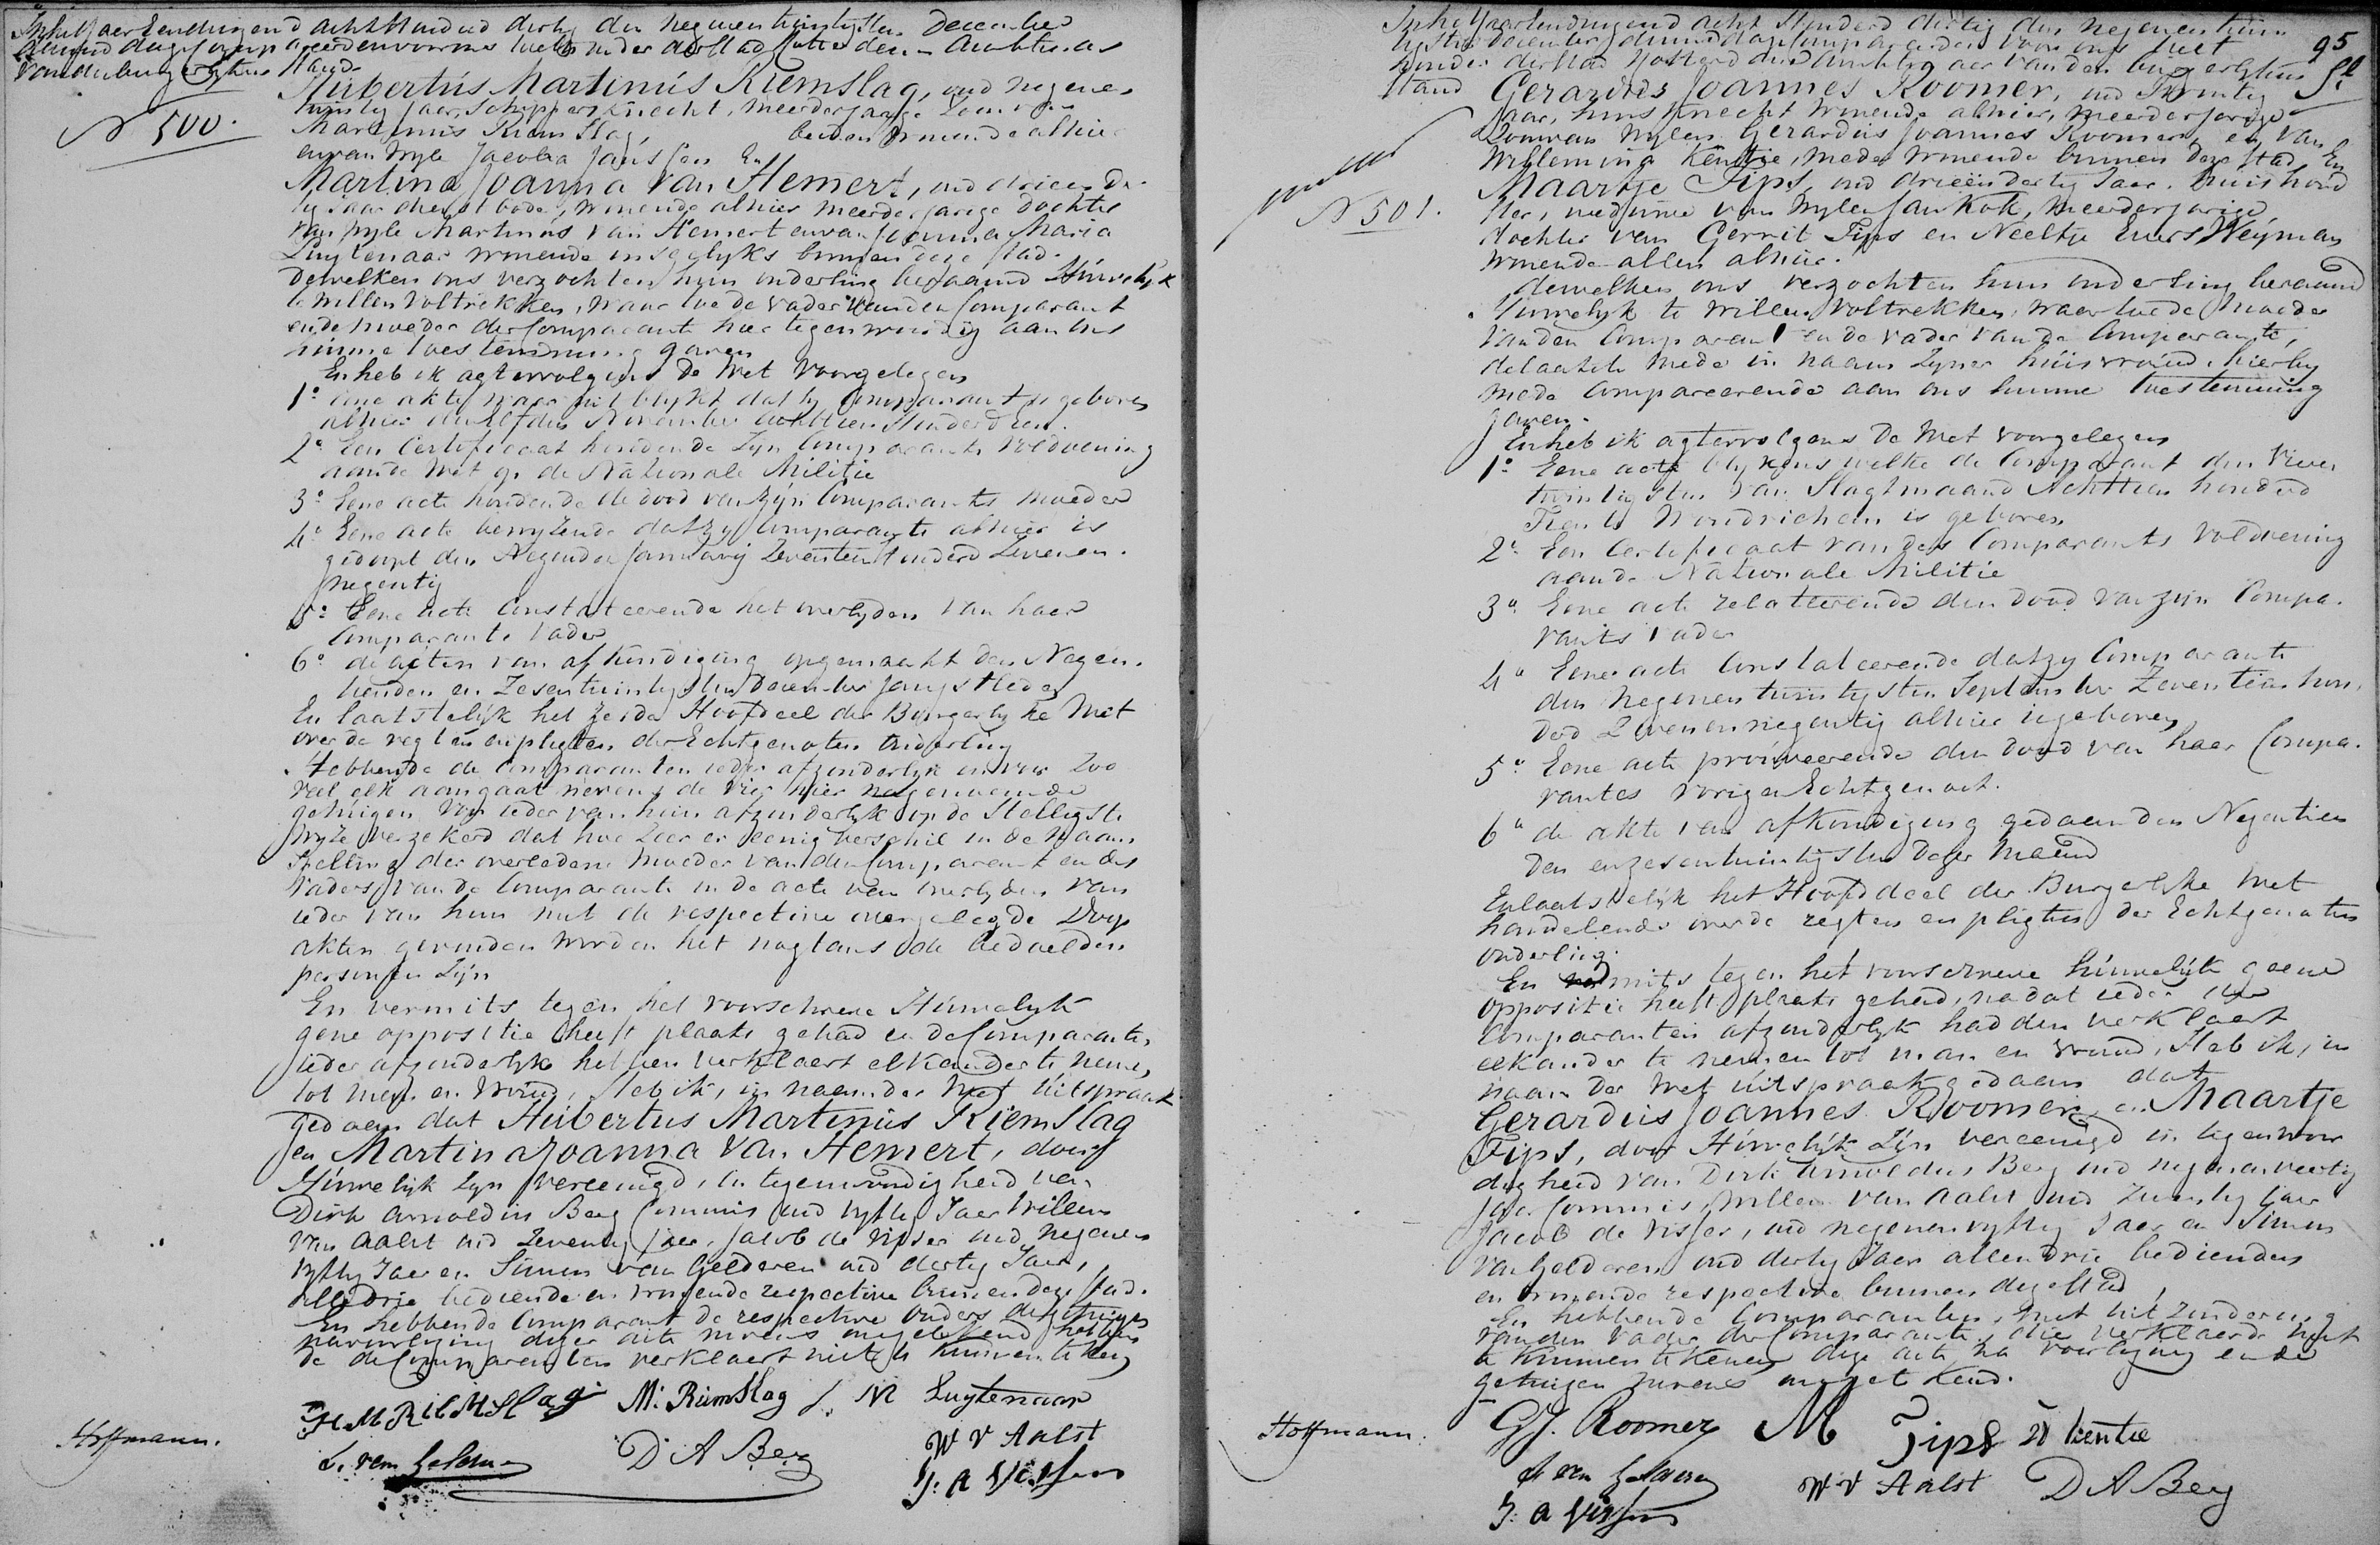 In het Jaar Eenduizend acht Honderd dertig den negenentwintigsten December
compareerden voor ons Wethouder der Stad Rotterdam Ambtenaar
van den burgerlyken Stand
N 500.
Hubertus Martinus Riemslag, oud negenen
twintig Jaar, Schippersknecht, meerderjarige Zoon van
Martinus Riemslag, beiden wonende alhier
en van wyle Jacoba Janssen En
Martina Joanna van Hemert, oud drieen der
tig Jaar dienstbode, wonende alhier meerderjarige dochter
van wyle Martinus van Hemert en van Joanna Maria
Luytenaar wonende insgelyks binnen deze Stad.
dewelken ons verzochten hun onderling beraamd Huwelijk
te willen voltrekken, waartoe de vader van den Comparant
en de moeder der Comparante hier tegenwoordig aan ons
hunne toestemming gaven
En heb ik agtervolgens de Wet voorgelezen
1o eene akte waar uit blykt dat hy Comparant is geboren
alhier den elfden November achttien Honderd een.
2o Een Certificaat houdende zyn Comparants voldoening
aan de Wet op de Nationale Militie
3o Eene acte houdende de dood van zijn Comparants moeder
4o Eene acte bewyzende dat zy Comparante alhier is
gedoopt den Negenden January Zeventien Honderd Zevenen
negentig
5o Eene acte Constateerende het overlyden van haer
Comparante vader
6o de acten van afkondiging opgemaakt den Negen
tienden en Zesentwintigsten December jongstleden
En laatstelijk het zesde Hoofdeel der Burgerlyke Wet
over de regten en pligten der Echtgenoten onderling
Hebbende de Comparanten ieder afzonderlyk en voor Zoo
veel elk aangaat nevens de vier hier nagenoemde
getuigen Van ieder van hun afzonderlyk op de Stelligste
wyze verzekerd dat hoe Zeer er eenig verschil in de Naam
Spelling der overledene Moeder van den Comparant en des
Vaders van de Comparante in de acte van overlyden van
ieder van hun met de respective overgelegde Doop
akten gevonden worden het nogtans de bedoelden
personen Zijn
En vermits tegen het voorschreve Huwelyk
gene oppositie heeft plaats gehad en de Comparanten
ieder afzonderlyk hebben verklaert elkander te nemen
tot man en Vrouw, Heb ik, in naam der Wet Uitspraak
gedaen dat Hubertus Martinus Riemslag
en Martina Joanna van Hemert, door
Huwelijk Zyn Vereenigd, in tegenwoordigheid van
Dirk Arnoldus Berg Commis oud vyftig Jaer Willem
van Aalst oud Zeventig Jaer, Jacob de Visser oud negenen
vyftig Jaer en Simon van Gelderen oud dertig Jaer,
alle Drie bediende en wonende respective binnen deze Stad.
En hebbende Comparant de respective Ouders de getuigen
na voorlezing dezer acte nevens ons getekend hebbende
de Comparante verklaert niet te kunnen teken
H M Riemslag M: Riemslag J. M Luytenaar
Hoffmann. S. van Gelderen D A Berg W V Aalst
J: A Visser
95
In het Jaar Eenduizend acht Honderd dertig den negenentwin
tigsten December compareerden voor ons Wet
houder der Stad Rotterdam Ambtenaar van den burgerlyken
Stand Gerardus Joannes Roomer, oud Twintig
Jaar, huisknecht wonende alhier, meerderjarige
Zoon van wylen Gerardus Joannes Roomer en van
Willemina Kentie, mede wonende binnen deze Stad En
N 501.
Maartje Fips, oud drieëndertig Jaar. huishoud
ster, weduwe van wylen Jan Kok, meerderjarige
dochter van Gerrit Fips en Neeltje Evers Weyman
wonende allen alhier.
dewelken ons verzochten hun onderling beraamd
Huwelyk te willen voltrekken, waartoe de moeder
van den Comparant en de vader van de Comparante,
de laatste mede in naam Zyner huisvrouw, hierby
mede Compareerende aan ons hunne toestemming
gaven.
En heb ik agtervolgens de Wet voorgelezen
1o Eene acte blykens welke de Comparant den vier
twintigsten van Slagtmaand Achttien honderd
Tien te Woudrichem is geboren
2o Een Certificaat van des Comparants voldoening
aan de Nationale Militie
3o Eene acte relateerende den dood van zijn Compa.
rants vader
4o Eene acte Constateerende dat zy Comparante
den negenentwintigsten September Zeventien hon
derd Zevenennegentig alhier is geboren
5o Eene acte prouveerende den dood van haar Compa.
rantes vorigen Echtgenoot.
6o de akte van afkondiging gedaen den Negentien
den en zesentwintigsten dezer Maand
En laatstelijk het Hoofddeel der Burgerlyke Wet
handelende over de regten en pligten der Echtgenoten
onderling.
En vermits tegen het voorschreve huwelijk geene
oppositie heeft plaats gehad, nadat ieder der
Comparanten afzonderlyk hadden verklaert
elkander te nemen tot man en vrouw, Heb ik, in
naam der Wet uitspraak gedaan dat
Gerardus Joannes Roomer, en Maartje
Fips, door Huwelijk Zijn vereenigd in tegenwoor
digheid van Dirk Arnoldus Berg oud negenenveertig
Jaer Commis, Willem van Aalst oud Zeventig Jaer
Jacob de Visser, oud negenenvyftig Jaer en Simon
van Gelderen oud dertig Jaer allen drie bedienden
en wonende respective binnen deze Stad
En hebbende Comparanten, met uitzondering
van den vader der Comparante, die verklaerde niet
te kunnen tekenen deze acte na voorlezing en de
getuigen nevens ons getekend.
Hoffmann. GJ. Roomer M Fips W Kentie
S van Gelderen W V Aalst D A Berg
J: A Visser